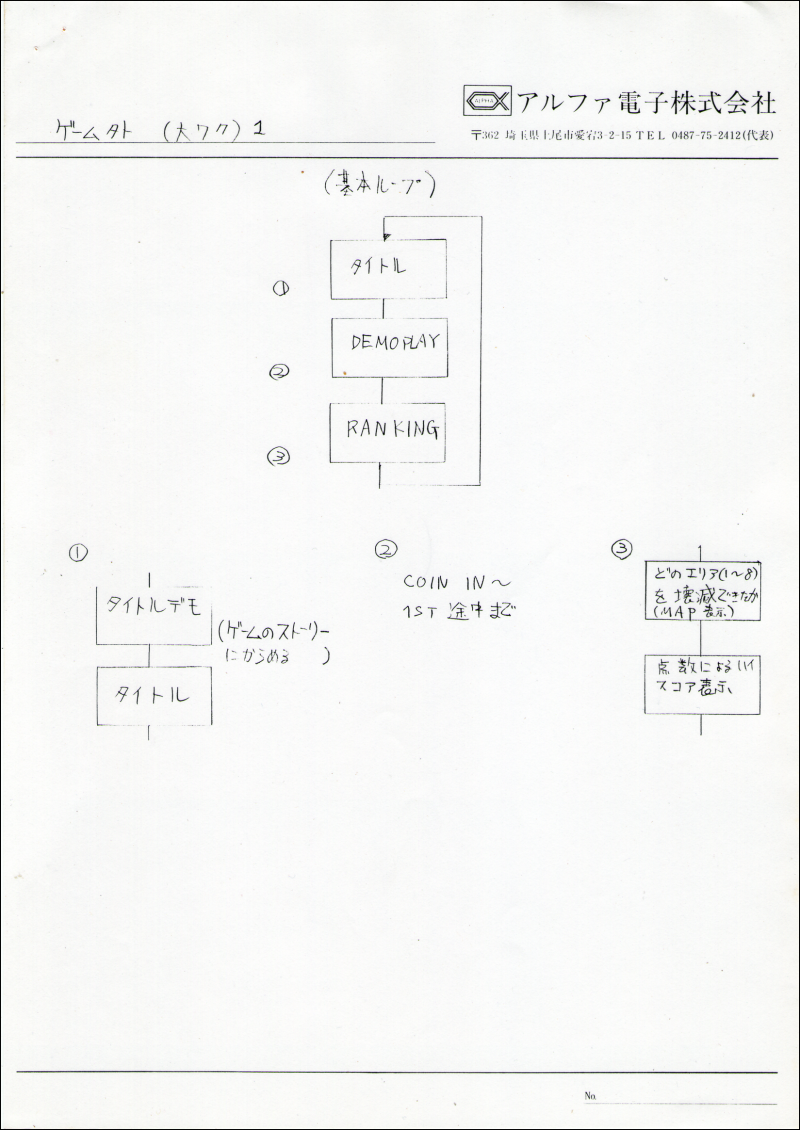 ALPHA
アルファ電子株式会社
〒362 埼玉県上尾市愛宕3-2-15 TEL 0487-75-2412(代表)
ゲーム外 (大ワク) 1
(基本ループ)
タイトル
①
DEMOPLAY
②
RANKING
③
①
タイトルデモ
(ゲームのストーリー
にからめる )
タイトル
②
COIN IN～
1ST 途中まで
③
どのエリア(1～8)
を壊滅できたか
(MAP 表示)
点数によるハイ
スコア表示
No.